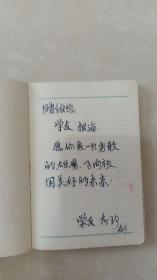 赠给:
学友 银海
愿你象一只勇敢
的雄鹰,飞向祖
国美好的未来
学友 秀玲